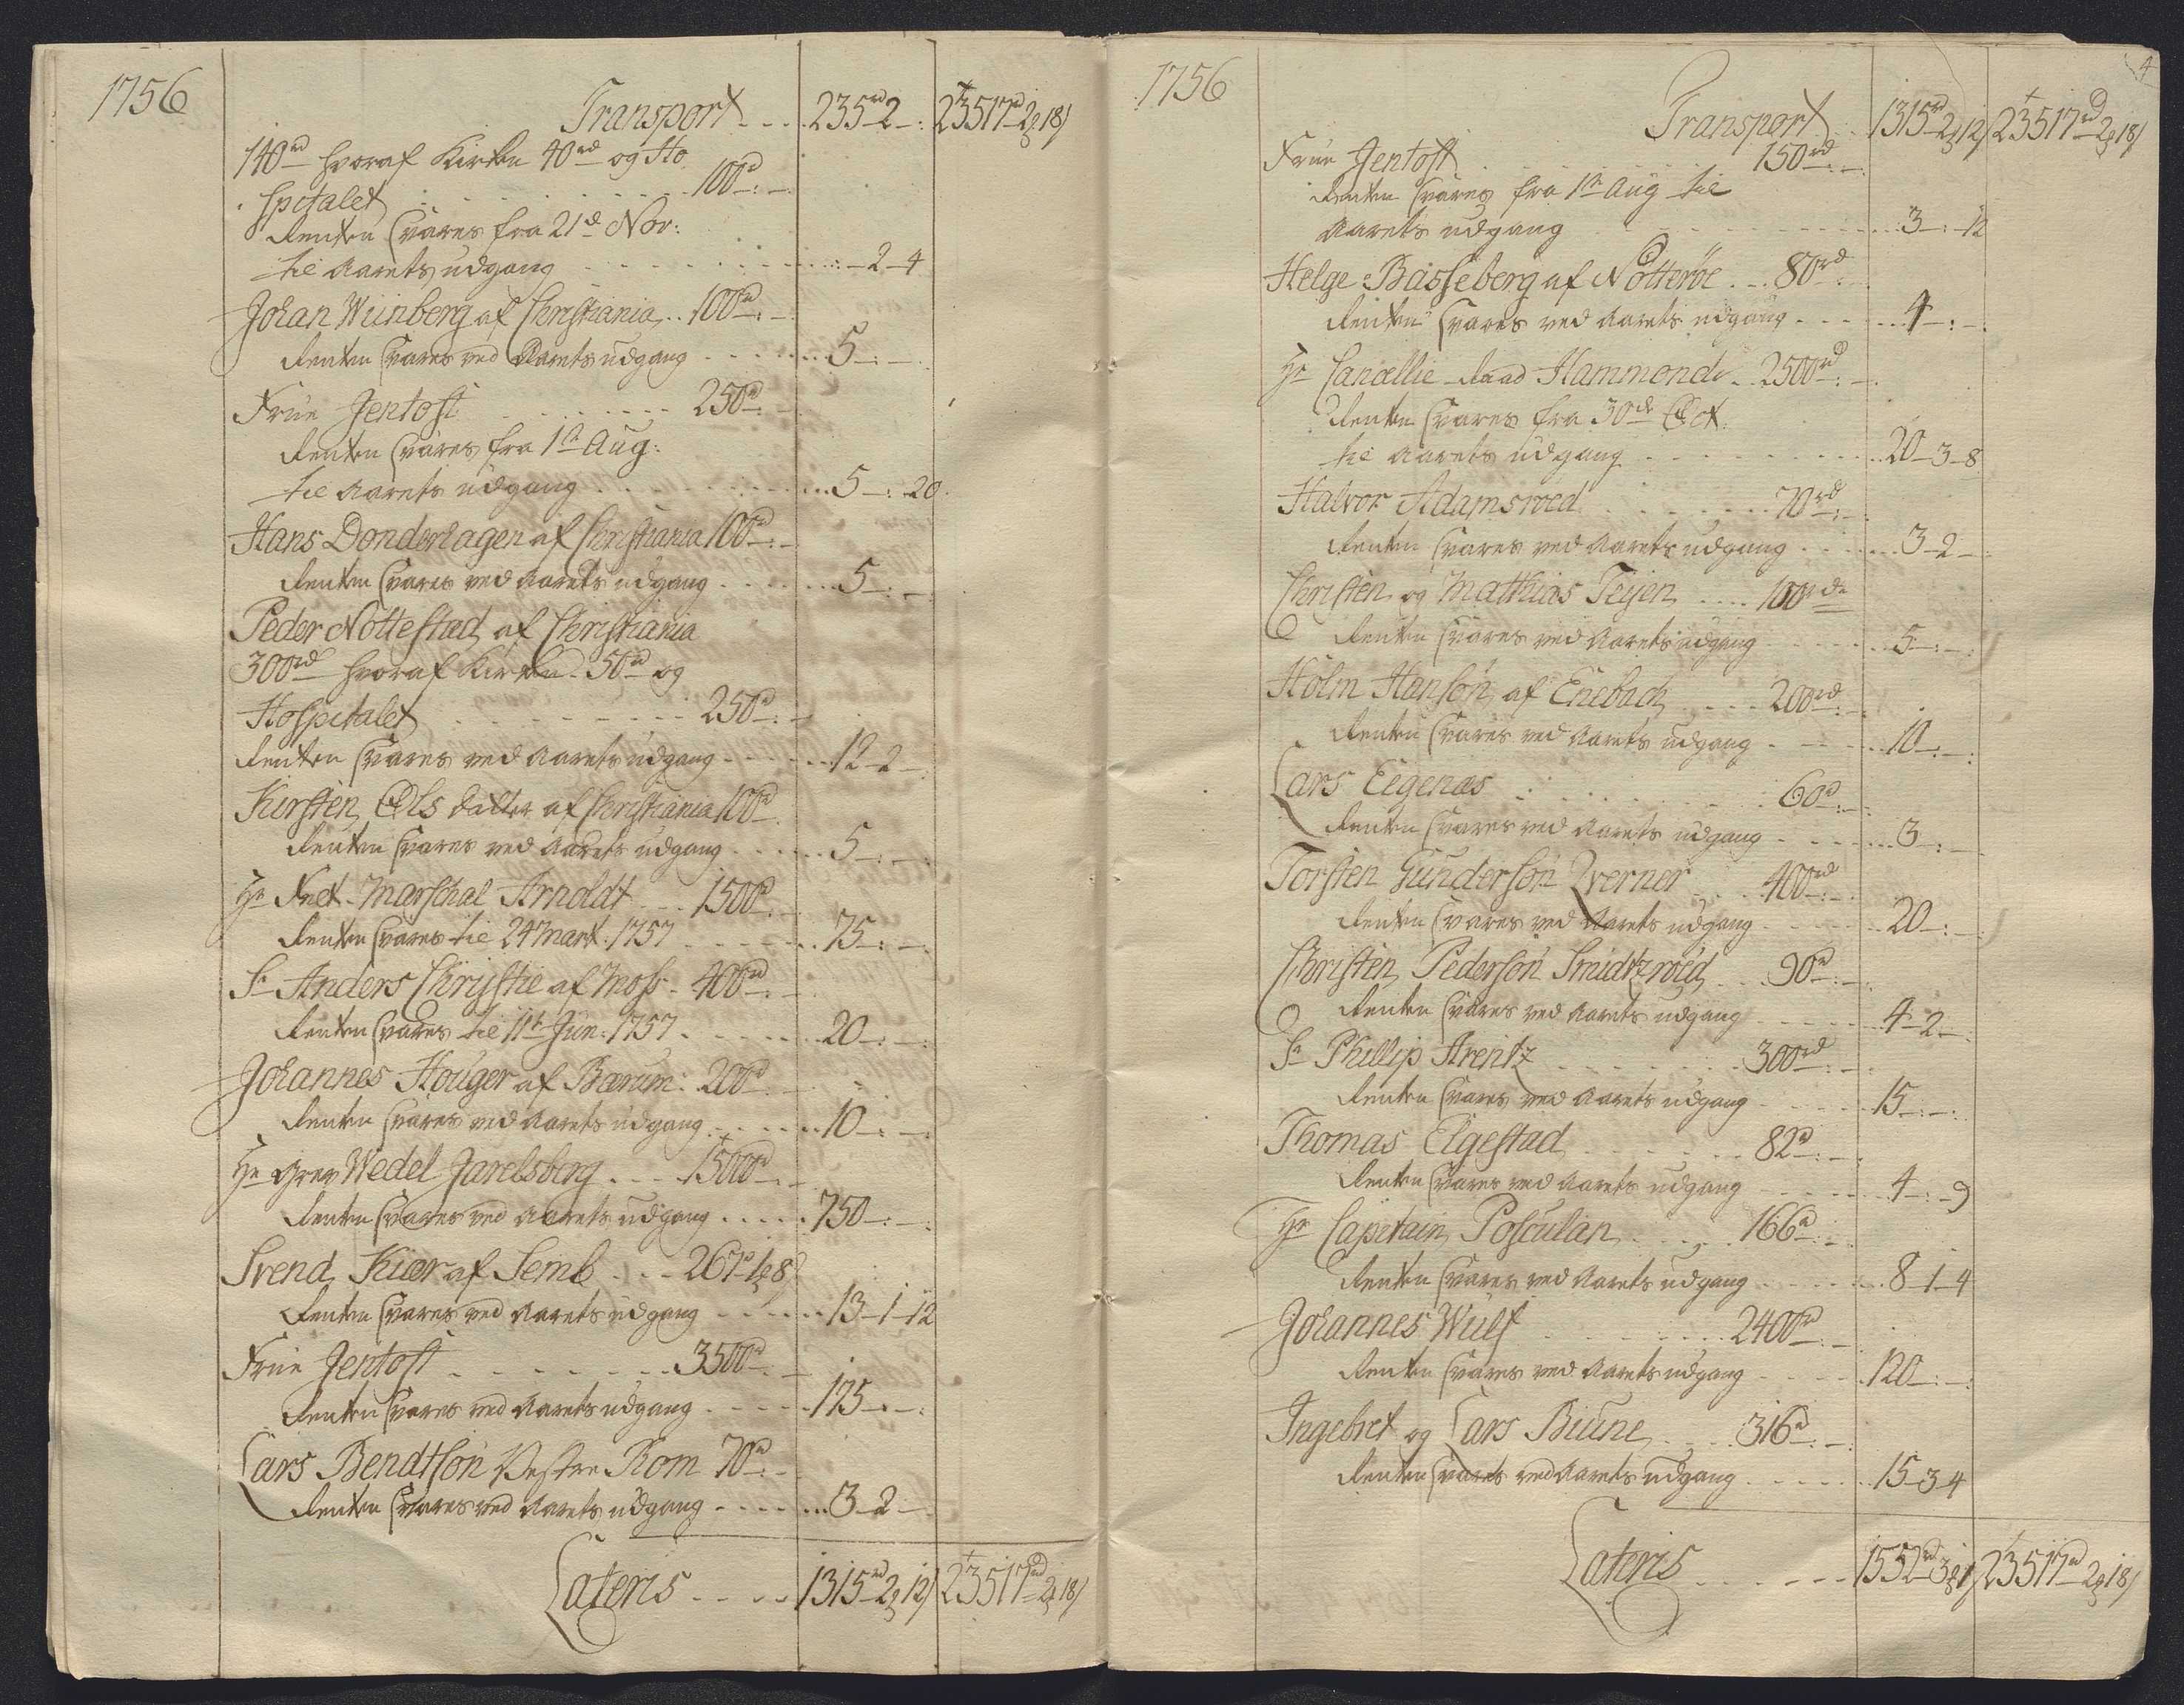 1756
Transport - - - 235rd 2 - : 23517rd 2ʒ 18ſ
140rd hvoraf Kirken 40rd og Ho
spitalet - - - 100rd : -
Renten svares fra 21de Nov:
til Aarets udgang - - - : - 2 - 4
Johan Wiinberg af Christiania - - 100rd : -
Renten svares ved Aarets udgang - - - 5 - : -
Frue Jentoft - - - 250rd : -
Renten svares fra 1te Aug:
til Aarets udgang - - - 5 - : 20
Hans Donderhagen af Christiania 100rd : -
Renten svares ved Aarets udgang - - - 5 - : -
Peder Nøttestad af Christiania
300rd hvoraf Kirken 50rd og
Hospitalet - - - 250rd : -
Renten svares ved Aarets udgang - - - 12 - 2 -
Kirsten Ols datter af Christiania 100rd
Renten svares ved Aarets udgang - - - 5 - : -
Hr Felt-Marschal Arnoldt - - 1500rd : -
Renten svares til 24 Mart: 1757 - - - 75 - : -
Sr Anders Christie af Moss - 400rd : -
Renten svares til 11te Jun: 1757 - - - 20 - : -
Johannes Houger af Bærum: 200rd : -
Renten svares ved Aarets udgang - - - 10 - : -
Hr Grev Wedel Jarelsberg - - - 15000rd : -
Renten svares ved Aarets udgang - - - 750 - : -
Svend Kiær af Semb - - - 267rd 1ʒ 8ſ
Renten svares ved Aarets udgang - - - 13 - 1 - 12
Frue Jentoft - - - 3500rd : -
Renten svares ved Aarets udgang - - - 175 - : -
Lars Bendtsøn Vestre Rom 70rd : -
Renten svares ved Aarets udgang - - - 3 - 2 -
Lateris - - - 1315rd 2ʒ 12ſ 23517rd 2ʒ 18ſ
1756
4
Transport - - 1315rd 2ʒ 12ſ 23517rd 2ʒ 18ſ
Frue Jentoft - - - 150rd : -
Renten svares fra 1te Aug til
Aarets udgang - - - 3 - : 12
Helge Basseberg af Nøtterøe - - 80rd : -
Renten svares ved Aarets udgang - - - 4 - : -
Hr Cancellie Raad Hammond - 2500rd : -
Renten svares fra 30de Oct:
til Aarets udgang - - - 20 - 3 - 8
Halvor Adamsroed - - - 70rd : -
Renten svares ved Aarets udgang - - - 3 - 2 -
Christen og Mathias Teijen - - - 100rd :
Renten svares ved Aarets udgang - - - 5 - : -
Holm Hansøn af Enebach - - - 200rd : -
Renten svares ved Aarets udgang - - - 10 - : -
Lars Eegenæs - - - 60rd : -
Renten svares ved Aarets udgang - - - 3 - : -
Torsten Gundersøn Qverner - - 400rd : -
Renten svares ved Aarets udgang - - - 20 - : -
Christen Pedersøn Smidtzroed - - 90rd : -
Renten svares ved Aarets udgang - - - 4 - 2 -
Sr Phillip Arentz - - - 300rd : -
Renten svares ved Aarets udgang - - - 15 - : -
Thomas Elgestad - - - 82rd : -
Renten svares ved Aarets udgang - - - 4 - : 9
Hr Capitain Posculan - - - 166rd : -
Renten svares ved Aarets udgang - - - 8 - 1 - 4
Johannes Wulf - - - 2400rd : -
Renten svares ved Aarets udgang - - - 120 - : -
Ingebret og Lars Biune - - - 316rd : -
Renten svares ved Aarets udgang - - - 15 - 3 4
Lateris - - - 1552rd 3ʒ 1ſ 23517rd 2ʒ 18ſ